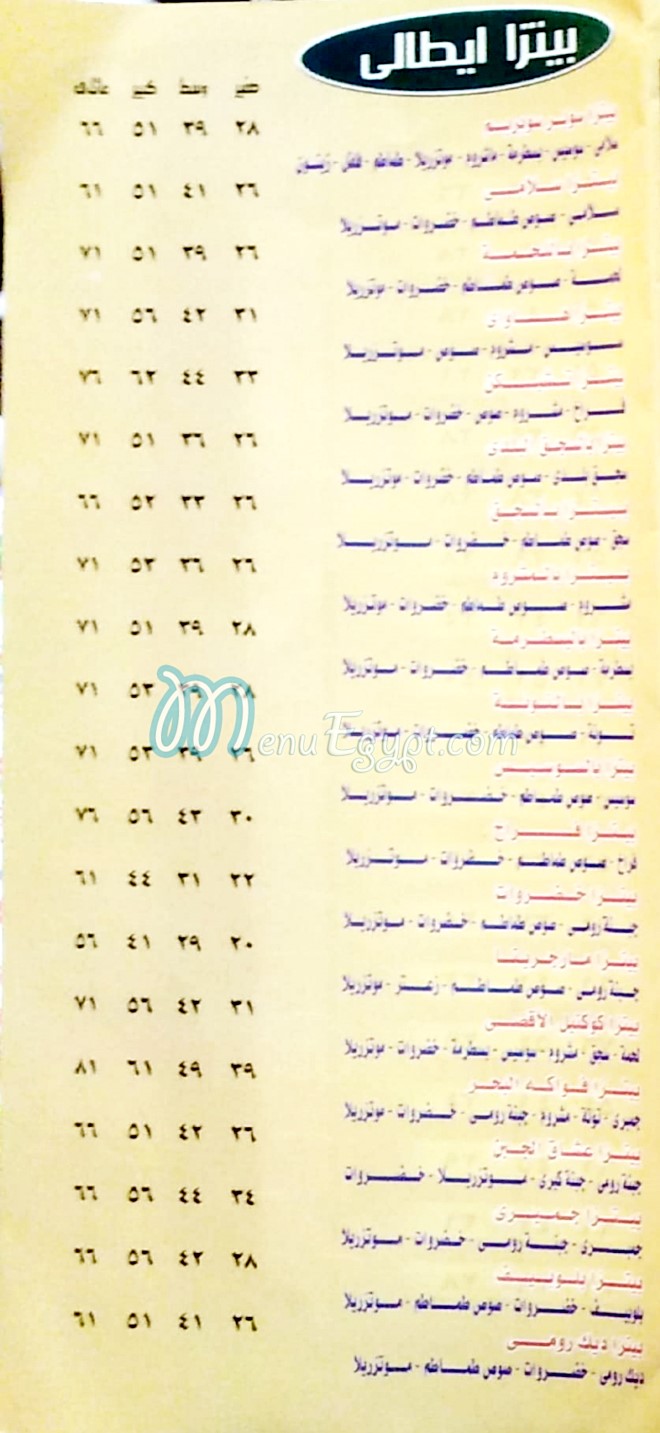 بيتزا ايطالى
صغير وسط كبير عائلى
بيتزا سوبر سوبريم
٢٨ ٣٩ ٥١ ٦٦
سلامى - سوسيس - بسطرمة - مشروم - موتزريلا - طماطم - فلفل - زيتون
بيتزا سلامى
٢٦ ٤١ ٥١ ٦١
سلامى - صوص طماطم - خضروات - موتزريلا
بيتزا باللحمة
٢٦ ٣٩ ٥١ ٧١
لحمة - صوص طماطم - خضروات - موتزريلا
بيتزا هاواى
٣١ ٤٢ ٥٦ ٧١
سوسيس - مشروم - صوص - موتزريلا
بيتزا تشيكن
٣٣ ٤٤ ٦٢ ٧٦
فراخ - مشروم - صوص - خضروات - موتزريلا
بيتزا بالسجق البلدى
٢٦ ٣٦ ٥١ ٧١
سجق بلدى - صوص طماطم - خضروات - موتزريلا
بيتزا بالسجق
٢٦ ٣٣ ٥٢ ٦٦
سجق - صوص طماطم - خضروات - موتزريلا
بيتزا بالمشروم
٢٦ ٣٦ ٥٣ ٧١
مشروم - صوص طماطم - خضروات - موتزريلا
بيتزا بالبسطرمة
٢٨ ٣٩ ٥١ ٧١
بسطرمة - صوص طماطم - خضروات - موتزريلا
بيتزا بالتونة
٢٨ ٣٩ ٥٣ ٧١
تونة - صوص طماطم - خضروات - موتزريلا
MenuEgypt.com
بيتزا بالسوسيس
٢٦ ٣٩ ٥٣ ٧١
سوسيس - صوص طماطم - خضروات - موتزريلا
بيتزا فراخ
٣٠ ٤٣ ٥٦ ٧٦
فراخ - صوص طماطم - خضروات - موتزريلا
بيتزا خضروات
٢٢ ٣١ ٤٤ ٦١
جبنة رومى - صوص طماطم - خضروات - موتزريلا
بيتزا مارجريتا
٢٠ ٢٩ ٤١ ٥٦
جبنة رومى - صوص طماطم - زعتر - موتزريلا
بيتزا كوكتيل الاقصى
٣١ ٤٢ ٥٦ ٧١
لحمة - سجق - مشروم - سوسيس - بسطرمة - خضروات - موتزريلا
بيتزا فواكه البحر
٣٩ ٤٩ ٦١ ٨١
جمبرى - تونة - مشروم - جبنة رومى - خضروات - موتزريلا
بيتزا عشاق الجبن
٢٦ ٤٢ ٥١ ٦٦
جبنة رومى - جبنة كيرى - موتزريلا - خضروات
بيتزا جمبرى
٣٤ ٤٤ ٥٦ ٦٦
جمبرى - جبنة رومى - خضروات - موتزريلا
بيتزا بلوبيف
٢٨ ٤٢ ٥٦ ٦٦
بلوبيف - خضروات - صوص طماطم - موتزريلا
بيتزا ديك رومى
٢٦ ٤١ ٥١ ٦١
ديك رومى - خضروات - صوص طماطم - موتزريلا